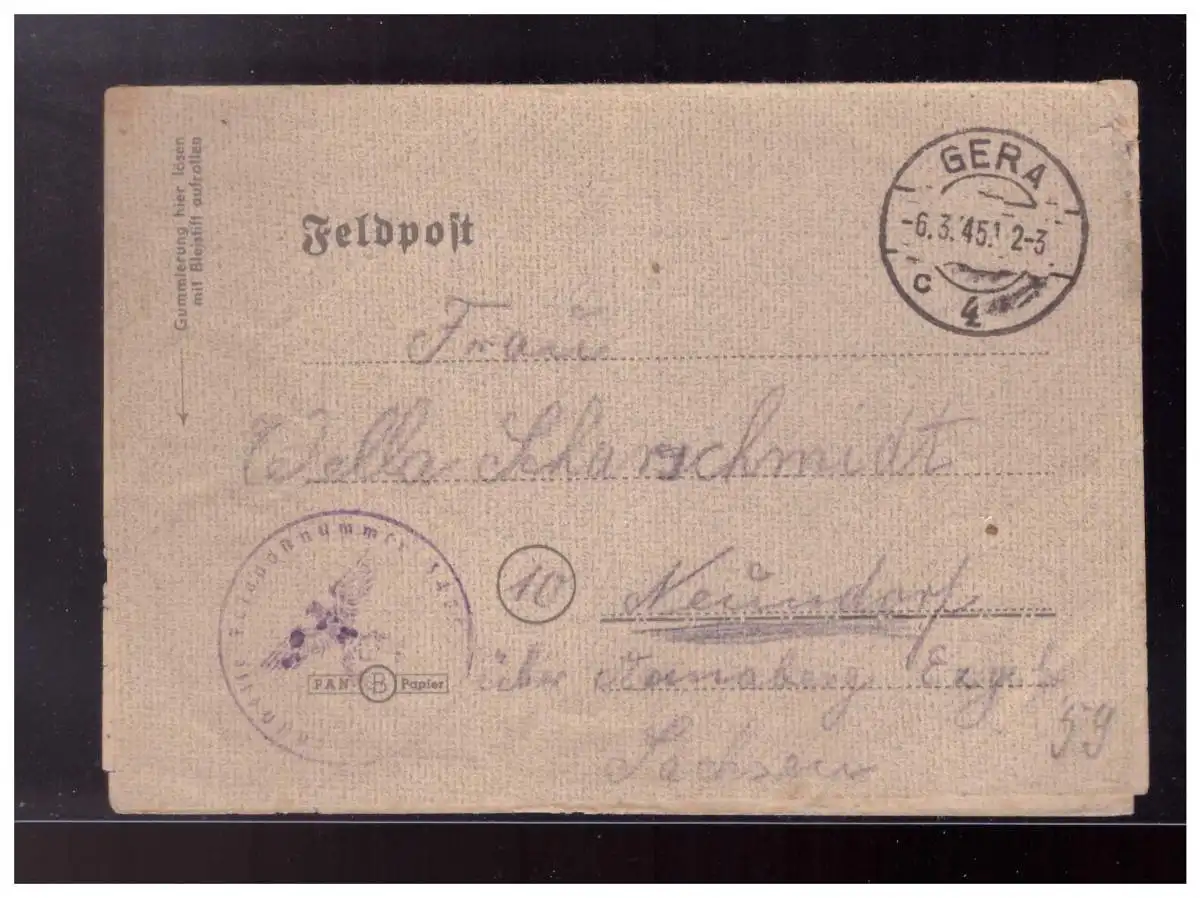 Gummierung hier lösen
mit Bleistift aufrollen
GERA
-6.3.45.12-3
c
4
Feldpost
Frau
Wella Scharschmidt
Feldpostnummer
10
Neundorf
PAN B Papier
über Annaberg Erzgb
59
Sachsen